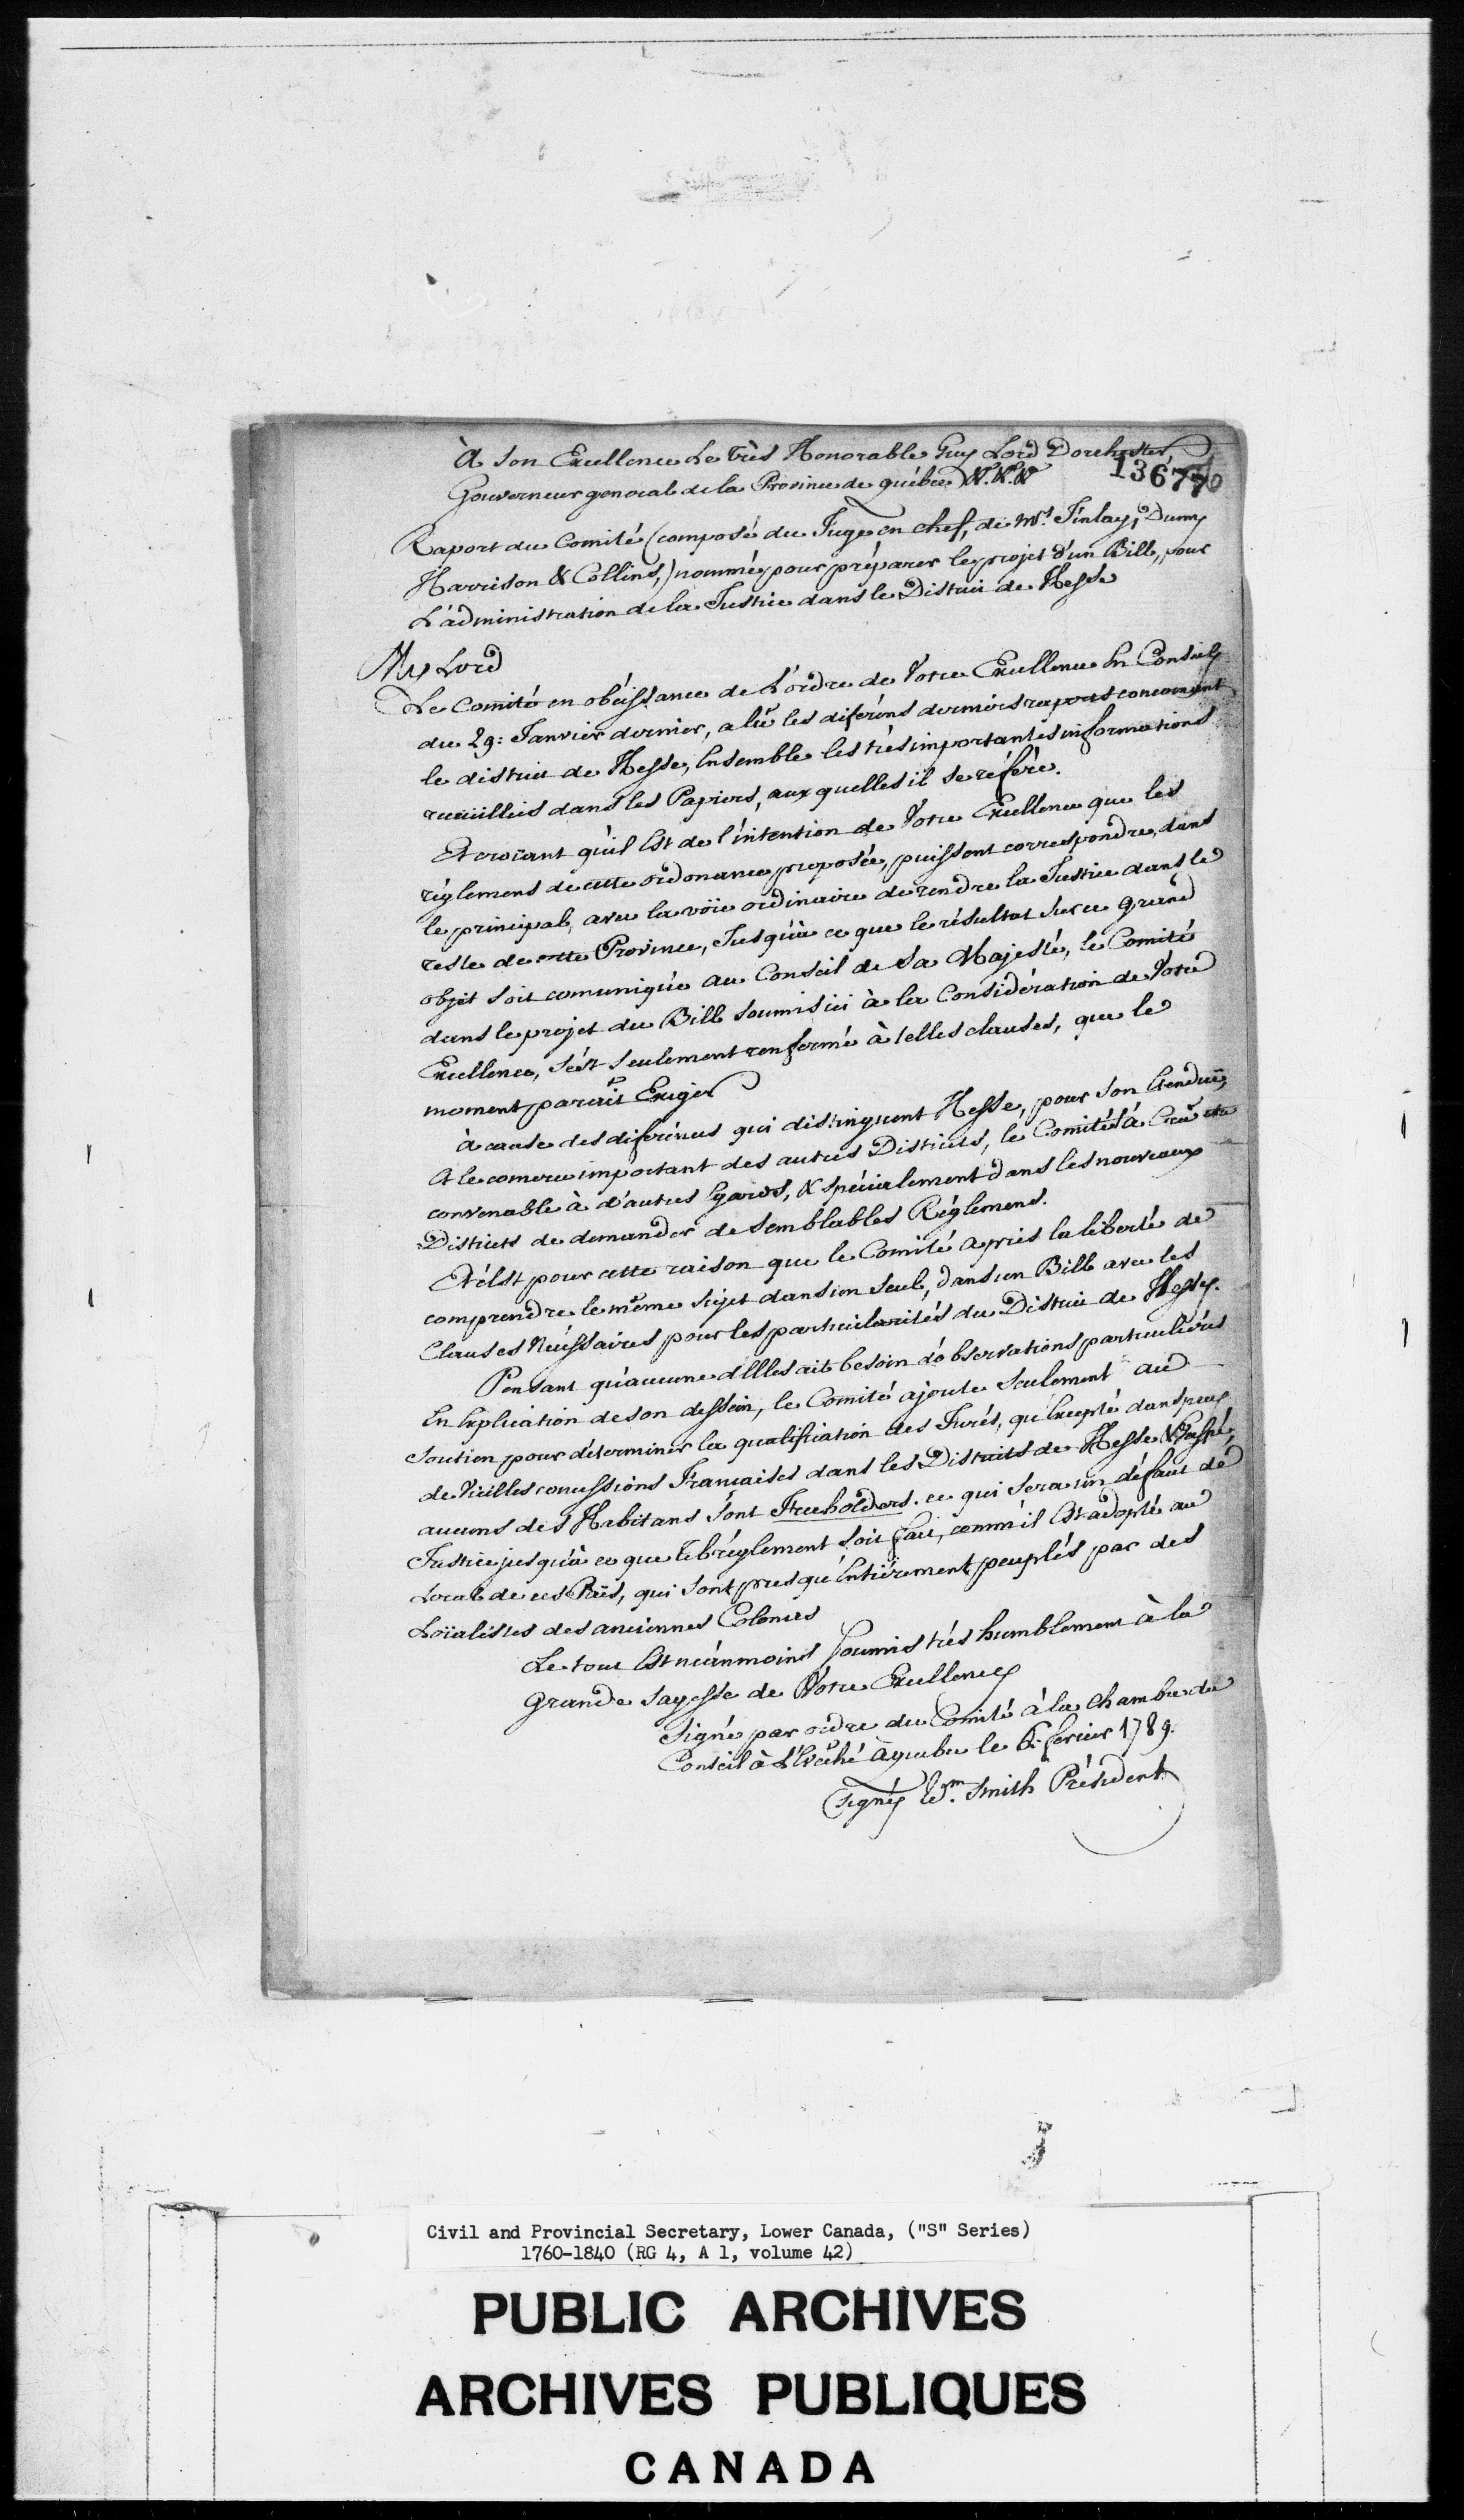 À Son Excellence Le très Honorable Guy Lord Dorchester,
13677
Gouverneur general de la Province de québec &. &. &
Raport du Comité (composé du Juge en chef, de Mrs. Finlay, Dunn,
Harrison & Collins,) nommé pour préparer le projet d'un Bill, pour
L'administration de la Justice dans le District de Hesse
My Lord
Le Comité en obéissance de L'ordre de Votre Excellence En Conseil
du 29: Janvier dernier, a lû les diferens derniers raports concernant
le district de Hesse, Ensemble les très importantes informations
recuüillies dans les Papiers, aux quelles il se réfère.
Et croïant qu'il Est de l'intention de Votre Excellence que les
réglemens de cette ordonance proposée, puissent correspondre, dans
le principal, avec la voïe ordinaire de rendre la Justice dans le
reste de cette Province, Jusqu'à ce que le résultat sur ce grand
objet soit comuniqué au Conseil de Sa Majesté, le Comité
dans le projet du Bill soumis ici à la Considération de Votre
Excellence, s'est seulement renfermé à telles clauses, que le
moment paraît Exiger
à cause des diférences qui distinguent Hesse, pour son Etenduë,
Et le comerce important des autres Districts, le Comité l'a Crû
convenable à d'autres Egards, & spécialement dans les nouveaux
Districts de demander de semblables Réglemens.
Et c'est pour cette raison que le Comité a pris la liberté de
comprendre le même sujet dans un seul, dans un Bill avec les
Clauses Nécessaires pour les particularités du District de Hesse.
Pensant qu'aucune d'Elles ait besoin d'observations particuliéres
En Explication de son dessein, le Comité ajoute seulement au
Soutien pour déterminer la qualification des Jurés, qu'Excepté dans peu
de Vieilles concessions Françaises dans les Districts de Hesse & Gaspé,
aucuns des Habitans sont Freeholders. ce qui sera un défaut de
Justice jusqu'à ce que le réglement soit fait, comm'il Est adopté au
Local de ces Païs, qui sont presqu'Entiérement peuplés par des
Loïalistes des anciennes Colonies
Le tout Est néanmoins soumis très humblement à la
grande sagesse de Votre Excellence
Signé par ordre du Comité à la Chambre du
Conseil à L'Evêché à quebec le 6. fevrier 1789.
(signé) Wm. Smith Président
Civil and Provincial Secretary, Lower Canada, ("S" Series)
1760-1840 (RG 4, A 1, volume 42)
PUBLIC ARCHIVES
ARCHIVES PUBLIQUES
CANADA